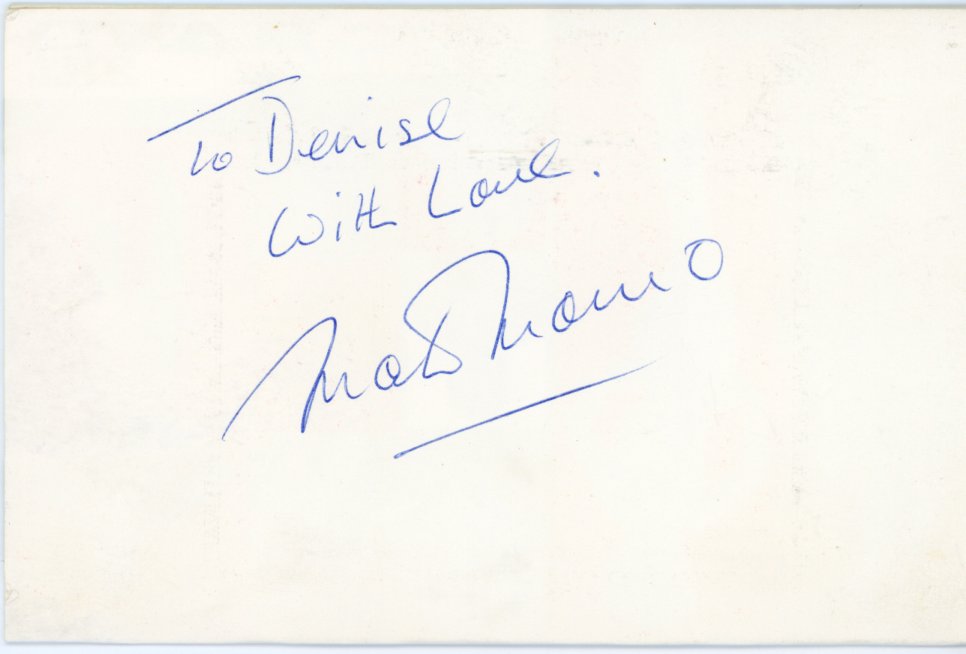 To Denise
With Love.
Matt Monro